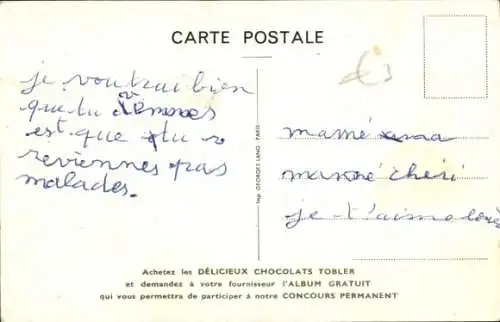 CARTE POSTALE
je voudrai bien
que tu
est que tu
reviennes pas
malades.
mamé
mamé chéri
je t'aime
Imp. GEORGES LANG, PARIS
Achetez les DÉLICIEUX CHOCOLATS TOBLER
et demandez à votre fournisseur l'ALBUM GRATUIT
qui vous permettra de participer à notre CONCOURS PERMANENT